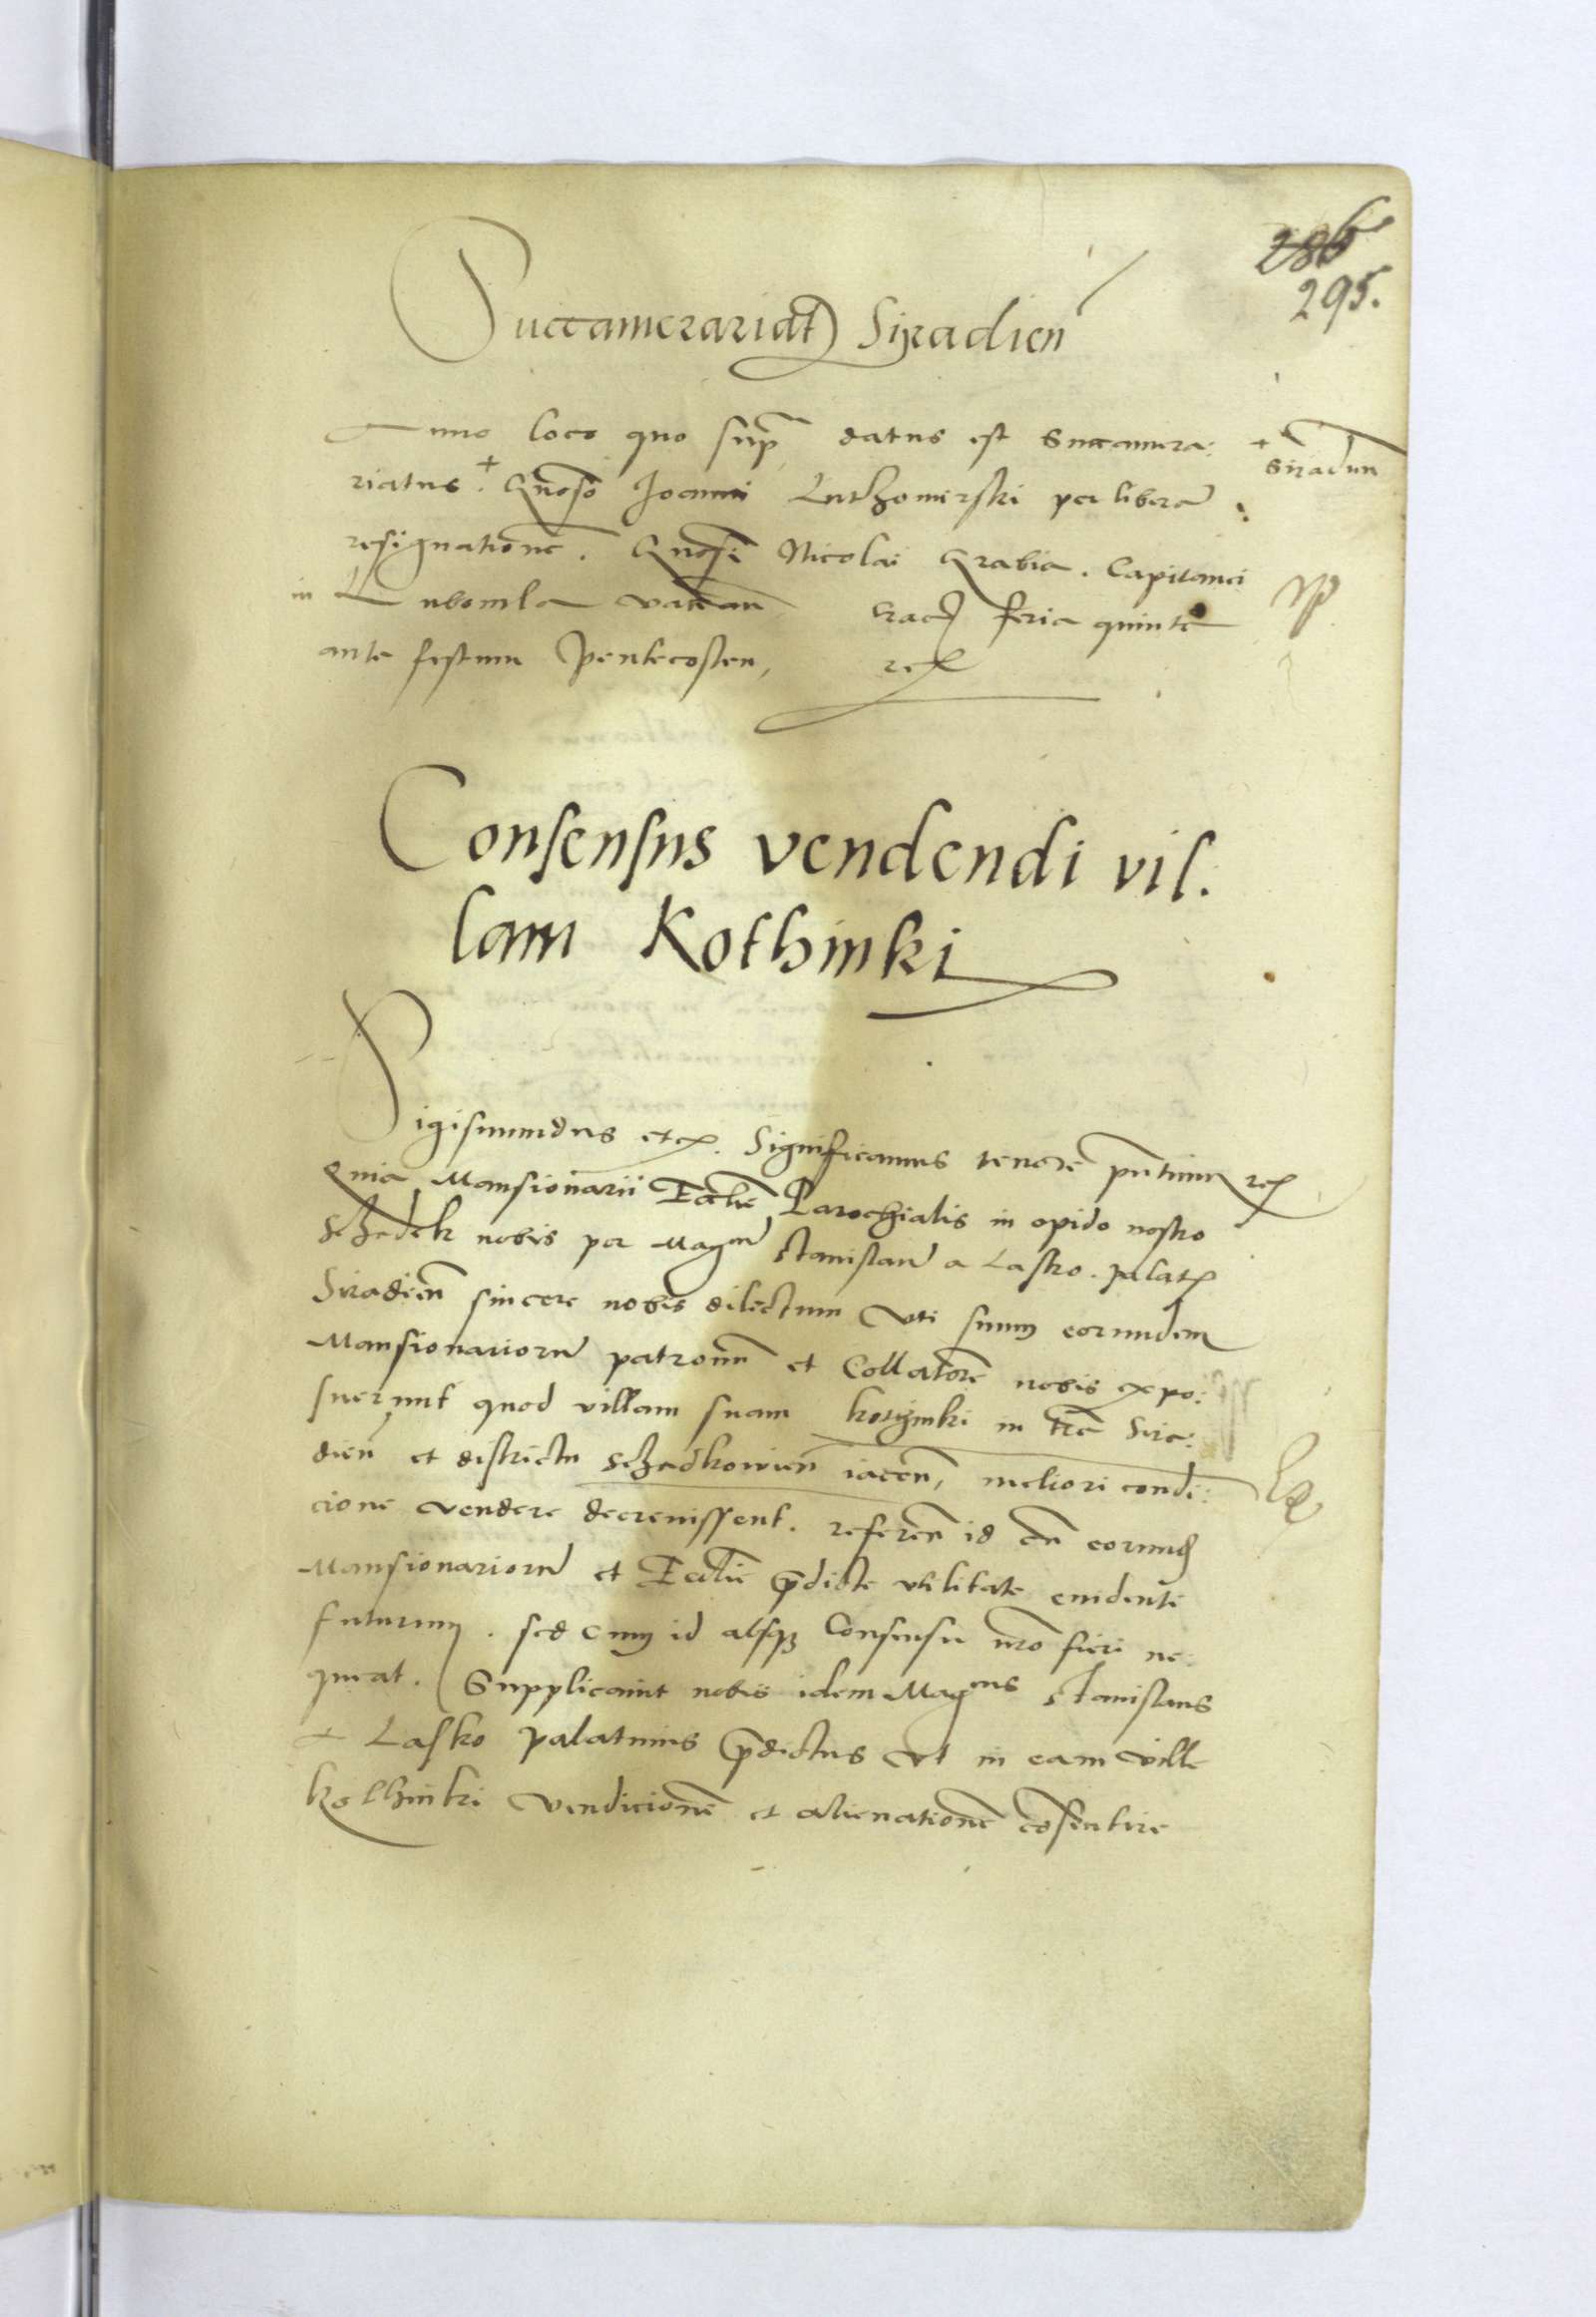 286
295.
Succamerariat9 Siradien
Anno loco quo sup datus est Succamera:
+ Siradien
riatus + Gnoso Joanni Luthomirski per liberã
resignatione. Gnosi Nicolai Grabia. Capitanei
in Lubomla vacan Crac feria quinta
ante festum Pentecosten, rex
Consensus vendendi vil.
lam Kothinki
Sigismundus etc. Significamus tenore pntium rex
Quia Mansionarii Eccliae Parochialis in opido nostro
Schadek nobis per Magcu Stanislaũ a Lasko. palat
Siradien sincere nobis dilectum uti suum eorundem
Mansionariorũ patronũ et Collatorẽ nobis expo:
suerunt quod villam suam kothinki in trã Sira:
dien et districtu Schadkowien iacen, meliori condi:
cione vendere decrevissent. referen id in eorund
Mansionariorũ et Eccliae pdicte utilitatẽ evidentẽ
futurum. sed cum id absq Consensu nro fieri ne
queat. Supplicavit nobis idem Magcus Stanislaus
a Lasko palatinus pdictus ut in eam ville
kothinki vendicionẽ et alienationẽ cõsentire